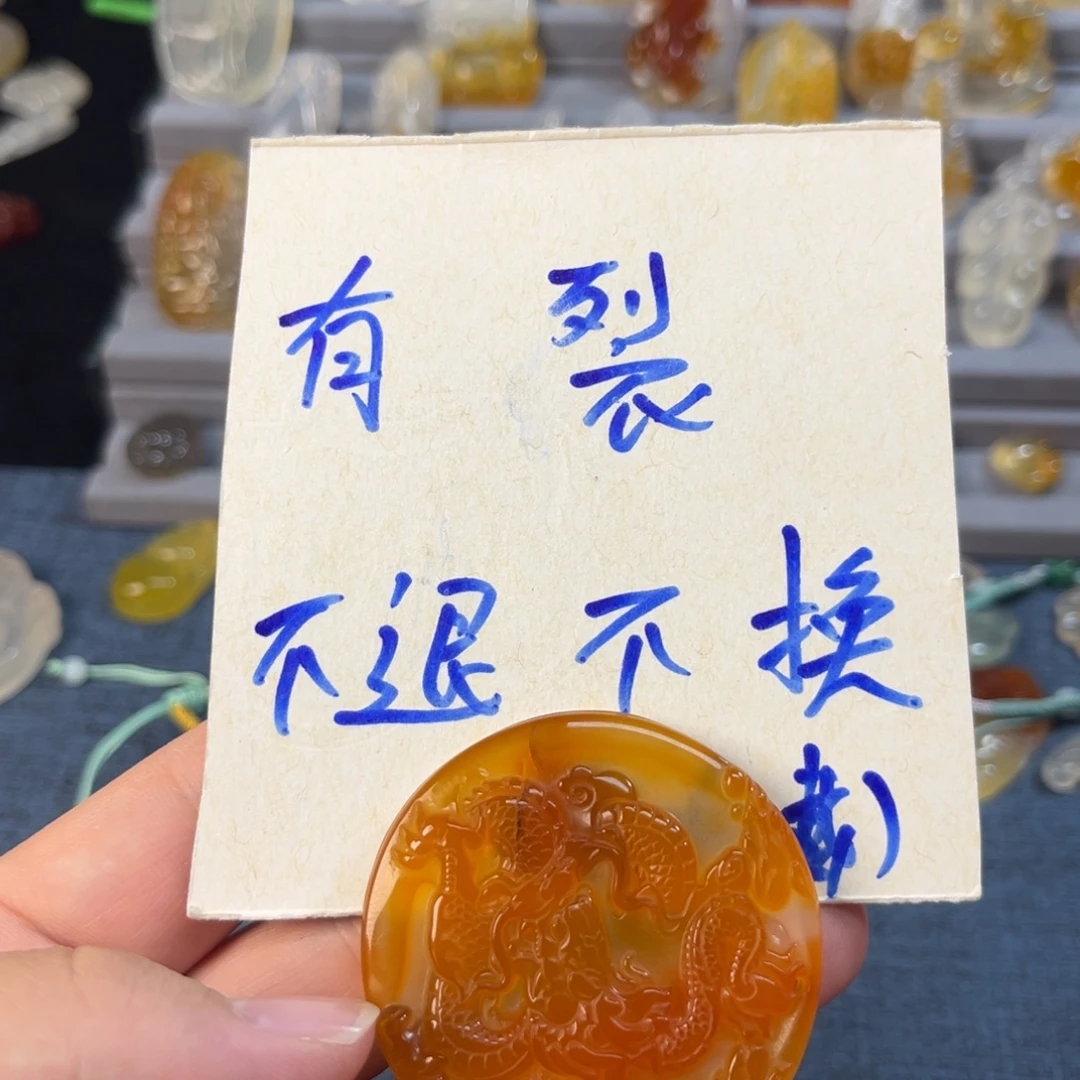 有 裂
不退不换